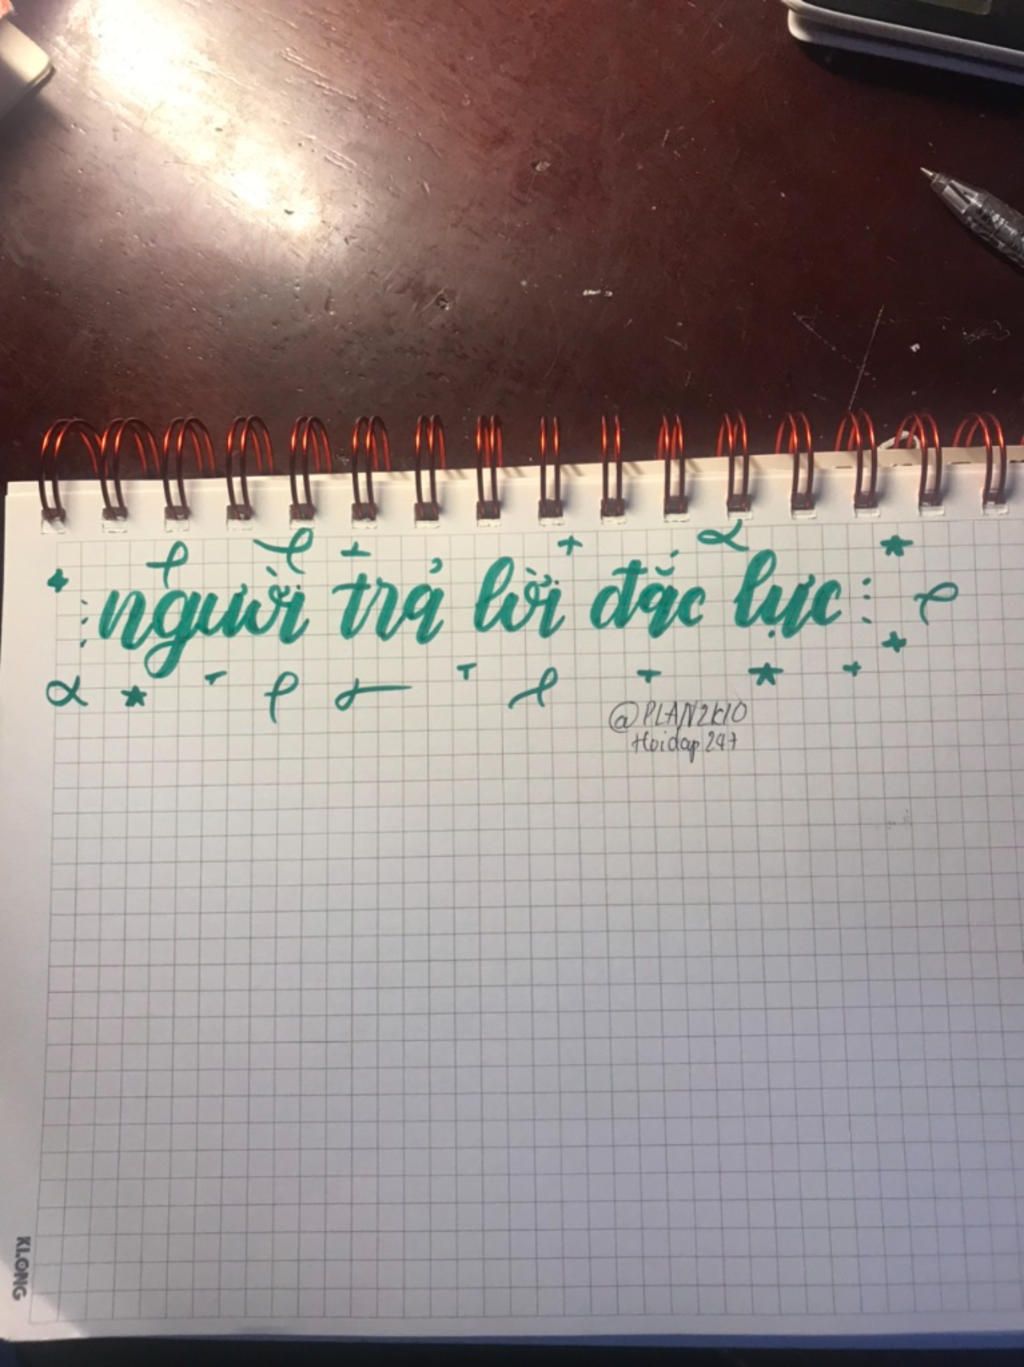 người trả lời đắc lực
@PLAN2K10
Hoidap 247
KLONG